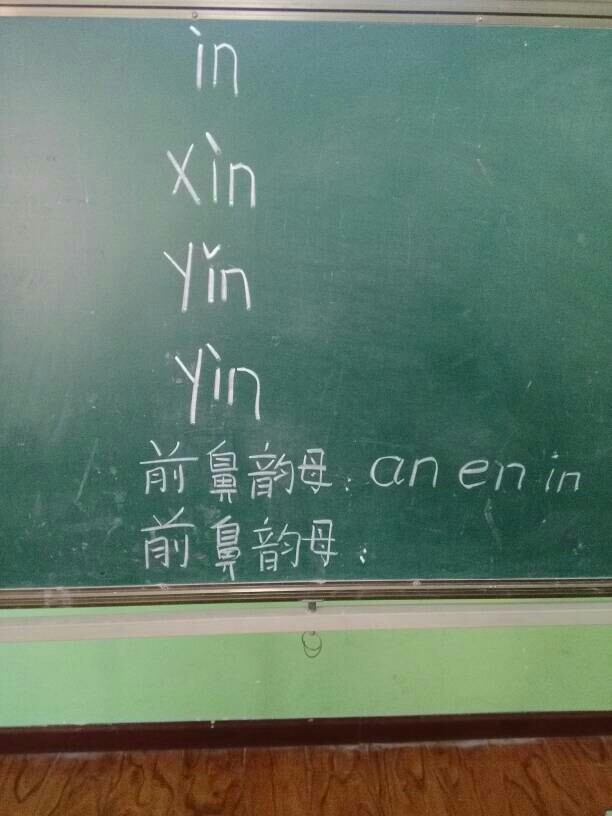 ìn
xìn
yǐn
yìn
前鼻韵母：an en in
前鼻韵母：